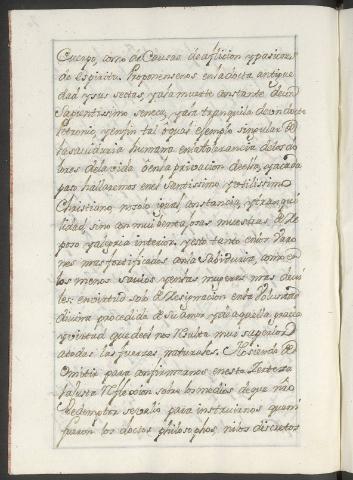 Cuerpo, como de Causas de aflicion y pasiones
de espiritu. Proponensenos en la docta antigue
dad y sus sectas, ya la muerte constante de un
Sapientissimo Seneca, ya la tranquila de un docto
Petronio, y en fin tal o qual exemplo singular de
resauiduria humana en la tolerancia de los do
lores de la vida ô en la privacion de ella, y a cada
paso hallaremos en el Santissimo y utilissimo
Christiano, no solo igual constancia, y tranqui
lidad, sino aun muchentajosas muestras de Re
poso y alegria interior, y esto tanto en los Varo
nes mas fortificados en la Sabiduria, como en
los menos sauios y en las mugeres mas devi
les: en virtud solo de Resignacion en la Voluntad
divina procedida de su Amor y de aquella gracia
y virtud que de el nos Resulta muy superior
a todas las fuerzas naturales. No siendo de
Omitir para confirmarnos en esta Certeza
la Justa Reflexion sobre los medios de que nro
Redemptor se valio para instruirnos quien
fueron los doctos philosophos, ni los discretos